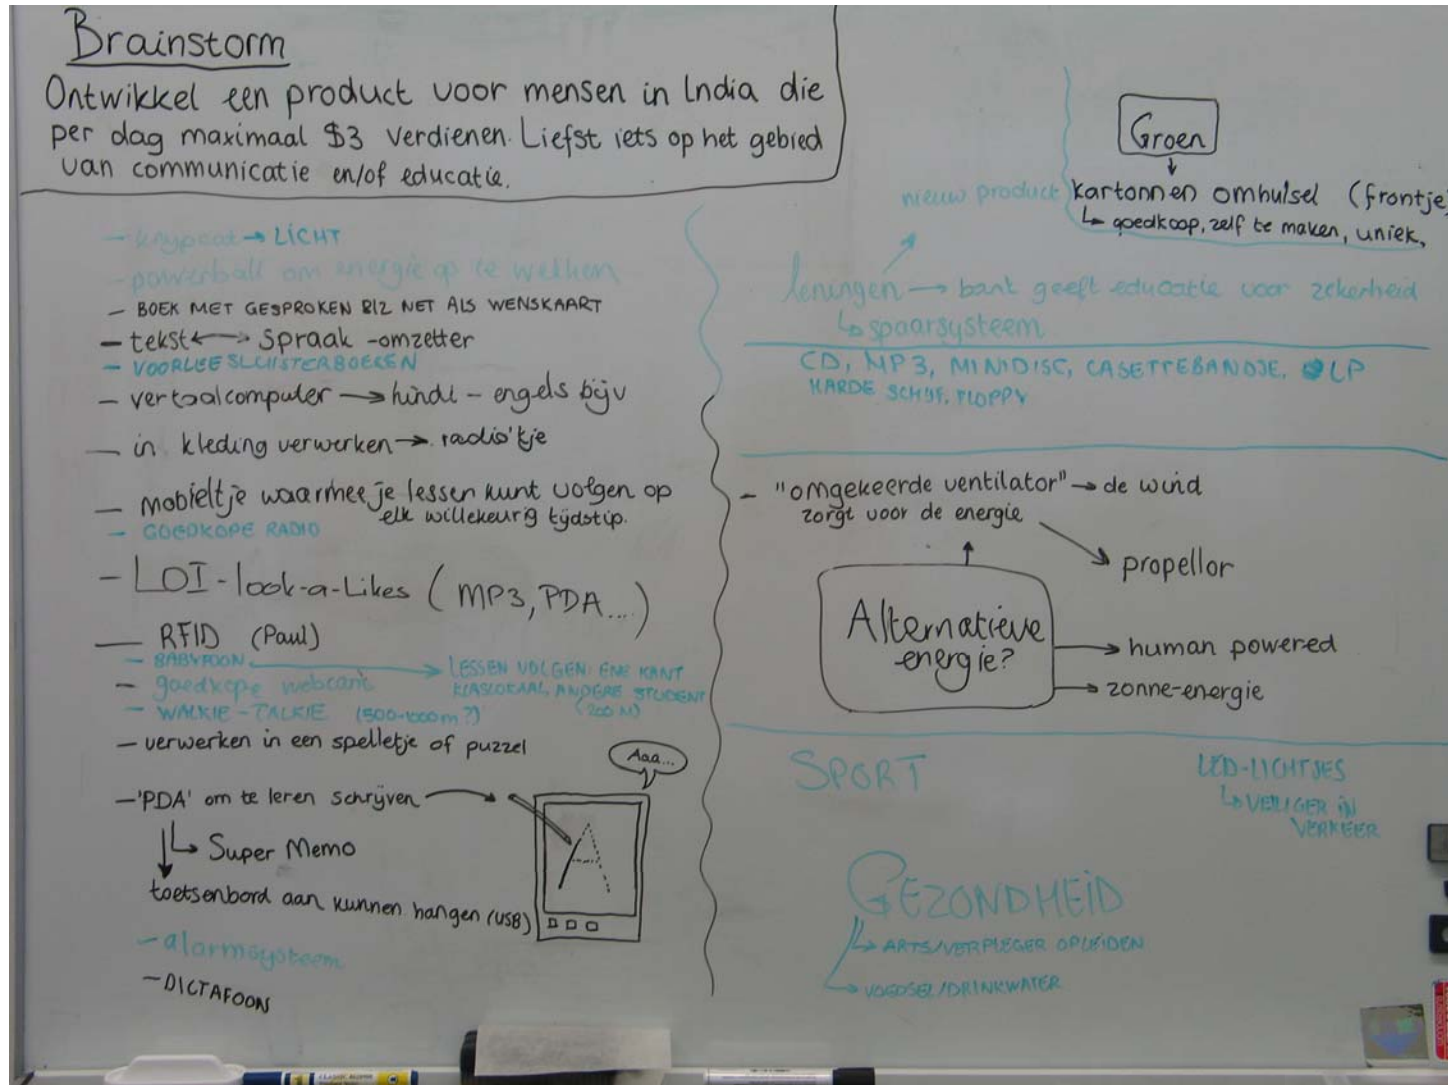 Brainstorm
Ontwikkel een product voor mensen in India die
per dag maximaal $3 verdienen. Liefst iets op het gebied
van communicatie en/of educatie.
- knijpcat → LICHT
- powerball om energie op te wekken
- BOEK MET GESPROKEN BLZ NET ALS WENSKAART
- tekst ↔ Spraak-omzetter
- VOORLEESLUISTERBOEKEN
- vertaalcomputer → hindi - engels bijv
- in kleding verwerken → radio'tje
- mobieltje waarmee je lessen kunt volgen op
elk willekeurig tijdstip.
- GOEDKOPE RADIO
- LOI-look-a-Likes (MP3, PDA...)
- RFID (Paul)
- BABYFOON → LESSEN VOLGEN: ENE KANT
KLASLOKAAL, ANDERE STUDENT
(200 M)
- goedkope webcam
- WALKIE-TALKIE (500-1000m?)
- verwerken in een spelletje of puzzel
- 'PDA' om te leren schrijven →
Aaa...
A
↳ Super Memo
toetsenbord aan kunnen hangen (USB)
- alarmsysteem
- DICTAFOON
Groen
nieuw product
kartonnen omhulsel (frontje)
↳ goedkoop, zelf te maken, uniek,
leningen → bank geeft educatie voor zekerheid
↳ spaarsysteem
CD, MP3, MINIDISC, CASETTEBANDJE, LP
HARDE SCHIJF, FLOPPY
- "omgekeerde ventilator" → de wind
zorgt voor de energie
propellor
Alternatieve
energie?
→ human powered
→ zonne-energie
SPORT
LED-LICHTJES
↳ VEILIGER IN
VERKEER
GEZONDHEID
↳ ARTS/VERPLEGER OPLEIDEN
→ VOEDSEL/DRINKWATER